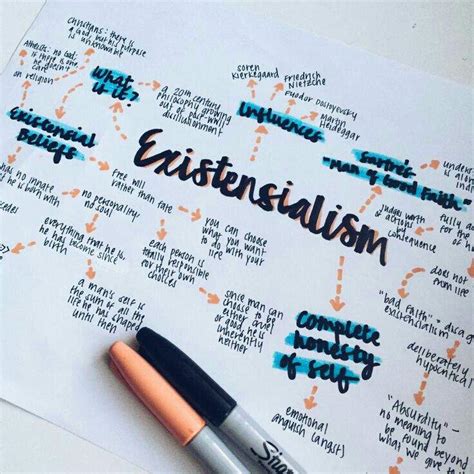 Christians: there is
a God, but his purpose
is unknowable
Atheists: no God-
if there is one
he doesn't
care
on religion
What
it it?
a 20th century
philosophy growing
out of post-WWII
disillusionment
soren
Kierkegaard
Friedrich
Nietzche
Fyodor Dostoyevsky
Martin
Heidegger
Influences
Sartre's
"Man of Good Faith"
Existensial
Beliefs
Existensialism
has no innate
he is born with
no personality
or soul
free will
rather than fate
you can choose
what you want
to do with your
life
each person is
totally responsible
for their own
choices
everything that he is,
he has become since
birth
a man's self is
the sum of all the
life he has shaped
until then
since man can
choose to be
either cruel
or good, he is
inherently
neither
complete
honesty
of self
emotional
anguish (angst)
judges worth
of actions by
consequence
does not
"bad faith"
existensialism
deliberately
hypocritical
"Absurdity"-
no meaning to
be found beyond
what we give to
Sharpie